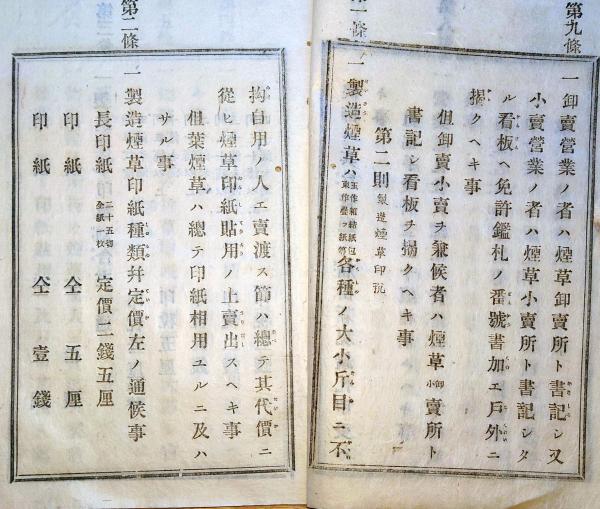 第九條
一卸賣營業ノ者ハ煙草卸賣所ト書記シ又
小賣營業ノ者ハ煙草小賣所ト書記シタ
ル看板ヘ免許鑑札ノ番號書加エ戸外ニ
揭クヘキ事
但卸賣小賣ヲ兼候者ハ煙草卸小賣所ト
書記シ看板ヲ揚クヘキ事
第二則 製造煙草印稅
一製造煙草ハ各種ノ大小斤目ニ不
第二條
拘自用ノ人エ賣渡ス節ハ總テ其代價ニ
從ヒ煙草印紙貼用ノ上賣出スヘキ事
但葉煙草ハ總テ印紙相用ユルニ及ハ
サル事
一製造煙草印紙種類幷定價左ノ通候事
長印紙 二十五切全紙一枚 定價二錢五厘
印紙 仝 五厘
印紙 仝 壹錢